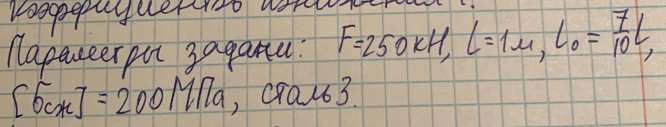 Коэффициентъ понижения φ.
Параметры задачи: F=250кН, l=1м, l₀=7/10 l,
[бсж]=200МПа, сталь3.